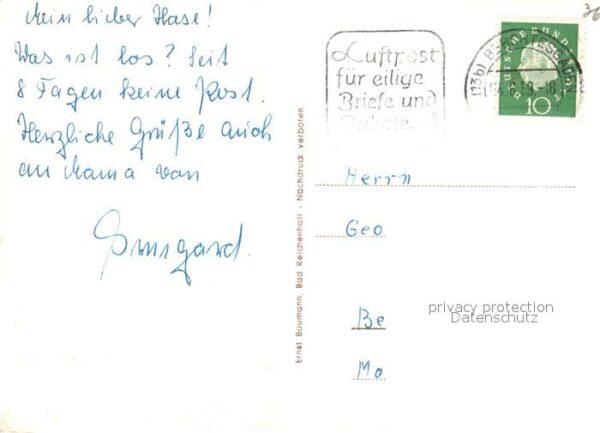 Mein lieber Hase!
Was ist los? Seit
8 Tagen keine Post.
Herzliche Grüße auch
an Mama von
Irmgard.
Ernst Baumann, Bad Reichenhall - Nachdruck verboten
Luftpost
für eilige
Briefe und
Pakete
(13b) BERCHTESGADEN
DEUTSCHE BUNDESPOST
10
36
Herrn
Geo
Be
Mo
privacy protection
Datenschutz